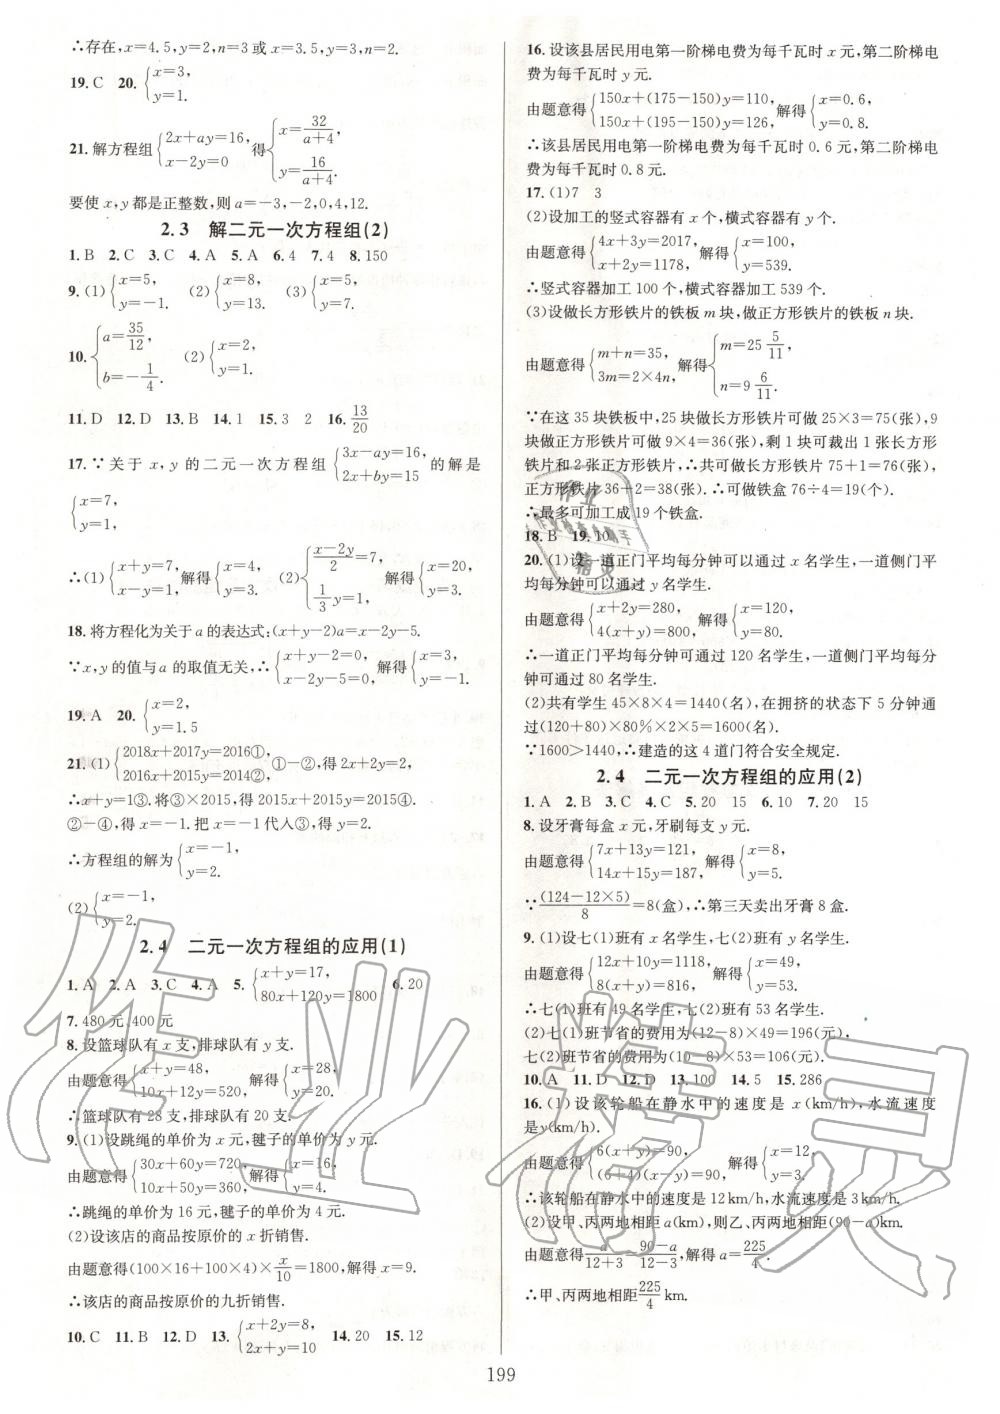 ∴存在,x=4.5,y=2,n=3或x=3.5,y=3,n=2.
19.C 20.{x=3, y=1.
21.解方程组{2x+ay=16, x-2y=0 得{x=32/(a+4), y=16/(a+4).
要使x,y都是正整数,则a=-3,-2,0,4,12.
2.3 解二元一次方程组(2)
1.B 2.C 3.C 4.A 5.A 6.4 7.4 8.150
9.(1){x=5, y=-1. (2){x=8, y=13. (3){x=5, y=7.
10.{a=35/12, b=-1/4. (2){x=2, y=1.
11.D 12.D 13.B 14.1 15.3 2 16.13/20
17.∵关于x,y的二元一次方程组{3x-ay=16, 2x+by=15 的解是
{x=7, y=1,
∴(1){x+y=7, x-y=1, 解得{x=4, y=3. (2){(x-2y)/2=7, 1/3 y=1, 解得{x=20, y=3.
18.将方程化为关于a的表达式:(x+y-2)a=x-2y-5.
∵x,y的值与a的取值无关,∴{x+y-2=0, x-2y-5=0, 解得{x=3, y=-1.
19.A 20.{x=2, y=1.5
21.(1){2018x+2017y=2016①, 2016x+2015y=2014②, ①-②,得2x+2y=2,
∴x+y=1③.将③×2015,得2015x+2015y=2015④.
②-④,得x=-1.把x=-1代人③,得y=2.
∴方程组的解为{x=-1, y=2.
(2){x=-1, y=2.
2.4 二元一次方程组的应用(1)
1.A 2.A 3.C 4.A 5.{x+y=17, 80x+120y=1800 6.20
7.480元,400元
8.设篮球队有x支,排球队有y支.
由题意得{x+y=48, 10x+12y=520, 解得{x=28, y=20.
∴篮球队有28支,排球队有20支.
9.(1)设跳绳的单价为x元,毽子的单价为y元.
由题意得{30x+60y=720, 10x+50y=360, 解得{x=16, y=4.
∴跳绳的单价为16元,毽子的单价为4元.
(2)设该店的商品按原价的x折销售.
由题意得(100×16+100×4)×x/10=1800,解得x=9.
∴该店的商品按原价的九折销售.
10.C 11.B 12.D 13.{x+2y=8, 2x+y=10 14.20 15.12
16.设该县居民用电第一阶梯电费为每千瓦时x元,第二阶梯电
费为每千瓦时y元.
由题意得{150x+(175-150)y=110, 150x+(195-150)y=126, 解得{x=0.6, y=0.8.
∴该县居民用电第一阶梯电费为每千瓦时0.6元,第二阶梯电
费为每千瓦时0.8元.
17.(1)7 3
(2)设加工的竖式容器有x个,横式容器有y个.
由题意得{4x+3y=2017, x+2y=1178, 解得{x=100, y=539.
∴竖式容器加工100个,横式容器加工539个.
(3)设做长方形铁片的铁板m块,做正方形铁片的铁板n块.
由题意得{m+n=35, 3m=2×4n, 解得{m=25 5/11, n=9 6/11.
∵在这35块铁板中,25块做长方形铁片可做25×3=75(张),9
块做正方形铁片可做9×4=36(张),剩1块可裁出1张长方形
铁片和2张正方形铁片,∴共可做长方形铁片75+1=76(张),
正方形铁片36+2=38(张).∴可做铁盒76÷4=19(个).
∴最多可加工成19个铁盒.
18.B 19.10
20.(1)设一道正门平均每分钟可以通过x名学生,一道侧门平
均每分钟可以通过y名学生.
由题意得{x+2y=280, 4(x+y)=800, 解得{x=120, y=80.
∴一道正门平均每分钟可通过120名学生,一道侧门每分钟
可通过80名学生.
(2)共有学生45×8×4=1440(名),在拥挤的状态下5分钟通
过(120+80)×80%×2×5=1600(名).
∵1600>1440,∴建造的这4道门符合安全规定.
2.4 二元一次方程组的应用(2)
1.A 2.B 3.C 4.C 5.20 15 6.10 7.20 15
8.设牙膏每盒x元,牙刷每支y元.
由题意得{7x+13y=121, 14x+15y=187, 解得{x=8, y=5.
∵(124-12×5)/8=8(盒),∴第三天卖出牙膏8盒.
9.(1)设七(1)班有x名学生,七(2)班有y名学生.
由题意得{12x+10y=1118, 8(x+y)=816, 解得{x=49, y=53.
∴七(1)班有49名学生,七(2)班有53名学生.
(2)七(1)班节省的费用为(12-8)×49=196(元),
七(2)班节省的费用为(10-8)×53=106(元).
10.A 11.D 12.D 13.100 14.5 15.286
16.(1)设该轮船在静水中的速度是x(km/h),水流速度
是y(km/h).
由题意得{6(x+y)=90, (6+4)(x-y)=90, 解得{x=12, y=3.
∴该轮船在静水中的速度是12km/h,水流速度是3km/h.
(2)设甲、丙两地相距a(km),则乙、丙两地相距(90-a)km.
由题意得a/(12+3)=(90-a)/(12-3),解得a=225/4.
∴甲、丙两地相距225/4km.
199
作业精灵